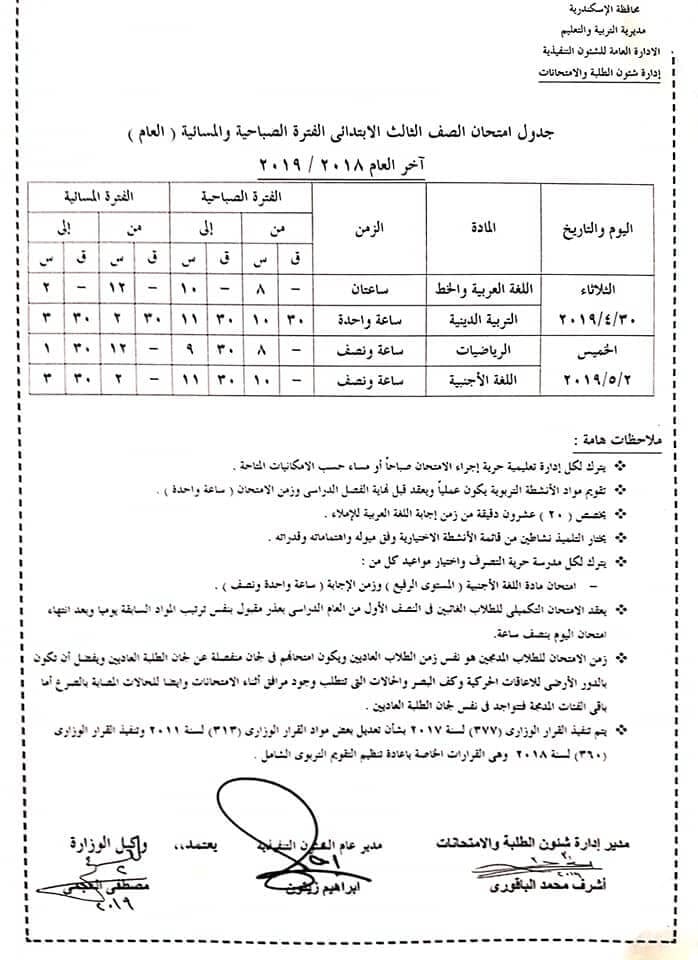 محافظة الإسكندرية
مديرية التربية والتعليم
الادارة العامة للشئون التنفيذية
إدارة شئون الطلبة والامتحانات
جدول امتحان الصف الثالث الابتدائى الفترة الصباحية والمسائية ( العام )
آخر العام ٢٠١٨ / ٢٠١٩
اليوم والتاريخ المادة الزمن الفترة الصباحية الفترة المسائية
من إلى من إلى
ق س ق س ق س ق س
الثلاثاء ٢٠١٩/٤/٣٠ اللغة العربية والخط ساعتان – ٨ – ١٠ – ١٢ – ٢
التربية الدينية ساعة واحدة ٣٠ ١٠ ٣٠ ١١ ٣٠ ٢ ٣٠ ٣
الخميس ٢٠١٩/٥/٢ الرياضيات ساعة ونصف – ٨ ٣٠ ٩ – ١٢ ٣٠ ١
اللغة الأجنبية ساعة ونصف – ١٠ ٣٠ ١١ – ٢ ٣٠ ٣
ملاحظات هامة :
❖ يترك لكل إدارة تعليمية حرية إجراء الامتحان صباحاً أو مساء حسب الامكانيات المتاحة .
❖ تقويم مواد الأنشطة التربوية يكون عملياً ويعقد قبل نهاية الفصل الدراسى وزمن الامتحان ( ساعة واحدة ) .
❖ يخصص ( ٢٠ ) عشرون دقيقة من زمن إجابة اللغة العربية للإملاء .
❖ يختار التلميذ نشاطين من قائمة الأنشطة الاختيارية وفق ميوله واهتماماته وقدراته .
❖ يترك لكل مدرسة حرية التصرف واختيار مواعيد كل من :
– امتحان مادة اللغة الأجنبية ( المستوى الرفيع ) وزمن الإجابة ( ساعة واحدة ونصف ) .
❖ يعقد الامتحان التكميلى للطلاب الغائبين فى النصف الأول من العام الدراسى بعذر مقبول بنفس ترتيب المواد السابقة يوميا وبعد انتهاء
امتحان اليوم بنصف ساعة.
❖ زمن الامتحان للطلاب المدمجين هو نفس زمن الطلاب العاديين ويكون امتحانهم فى لجان منفصلة عن لجان الطلبة العاديين ويفضل أن تكون
بالدور الأرضى للاعاقات الحركية وكف البصر والحالات التى تتطلب وجود مرافق أثناء الامتحانات وايضا للحالات المصابة بالصرع أما
باقى الفئات المدمجة فتتواجد فى نفس لجان الطلبة العاديين .
❖ يتم تنفيذ القرار الوزارى (٣٧٧) لسنة ٢٠١٧ بشأن تعديل بعض مواد القرار الوزارى (٣١٣) لسنة ٢٠١١ وتنفيذ القرار الوزارى
(٣٦٠) لسنة ٢٠١٨ وهى القرارات الخاصة باعادة تنظيم التقويم التربوى الشامل .
مدير إدارة شئون الطلبة والامتحانات مدير عام الشئون التنفيذية يعتمد،، وكيل الوزارة
أشرف محمد الباقورى ابراهيم زيتون مصطفى العجمى
٢٠١٩